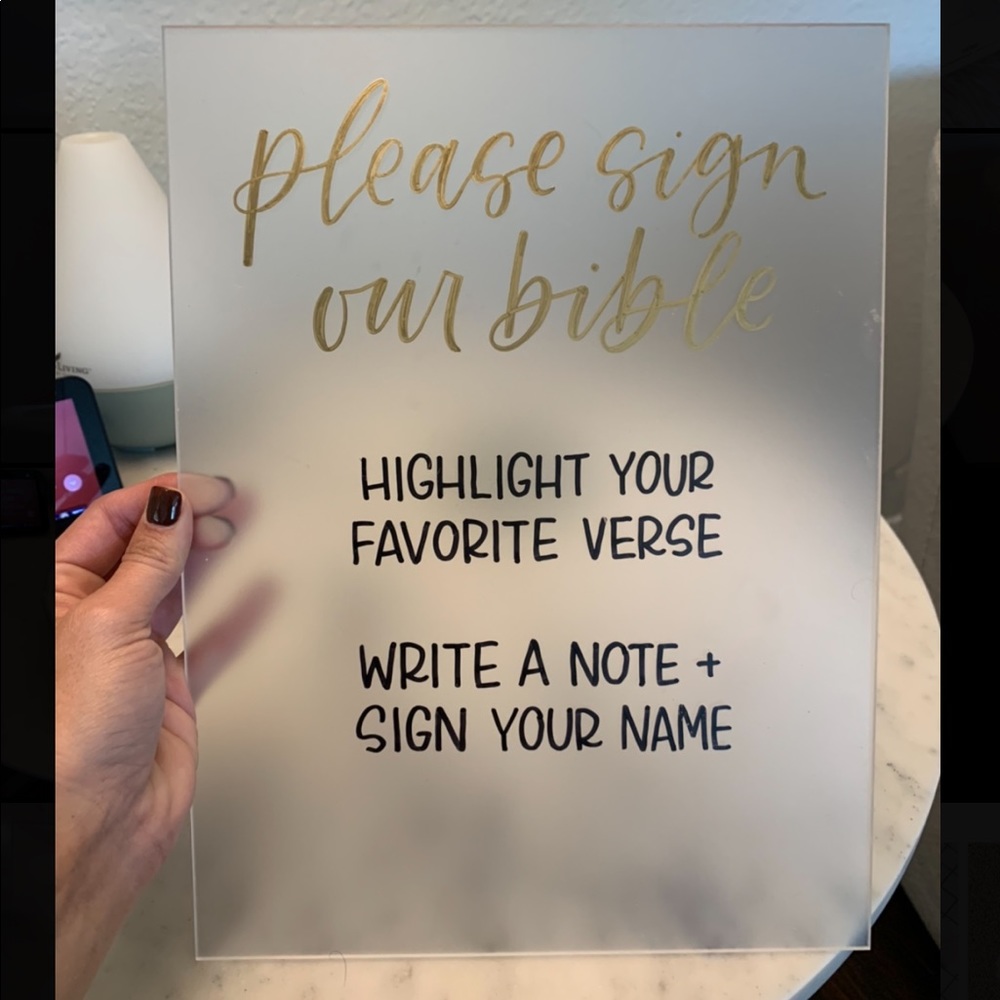 please sign
our bible
HIGHLIGHT YOUR
FAVORITE VERSE
WRITE A NOTE +
SIGN YOUR NAME
LIVING